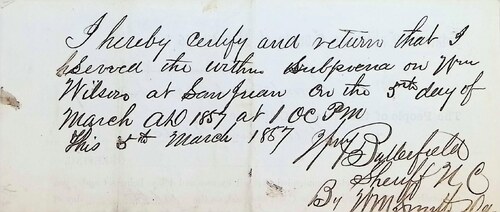 I hereby certify and return that I
Served the within Subpoena on Wm
Wilson at San Juan on the 5th day of
March AD 1857 at 1 OC PM
This 5th March 1857
Wm Butterfield
Sheriff N C
By Wm Smith